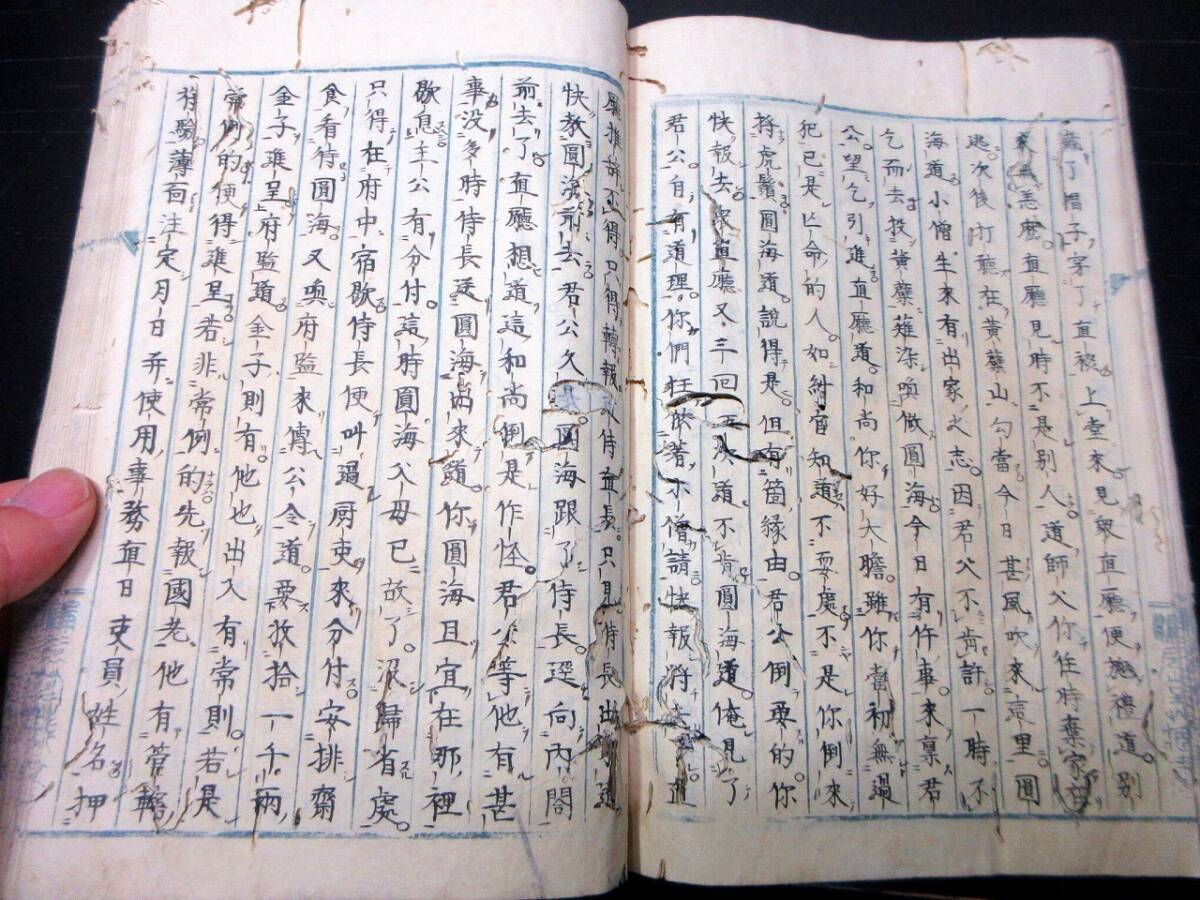 了帽子穿了直裰上堂來見眾直廳便施禮道別
來無恙麽直廳見時不是別人道師父你往時棄家
逃次後打聽在黃蘗山勾當今日甚風吹來這里圓
海道小僧生來有出家之志因君父不肯許一時不
乞而去投黃蘗薙染喚做圓海今日有件事來稟君
公望乞引進直廳道和尚你好大膽雖你當初無過
犯已是亡命的人如紂官知道不耍處不是你倒來
捋虎鬚圓海道說得是但有箇緣由君公倒要的你
快報去眾直廳又三回五次道不肯圓海道俺見了
君公自有道理你們狂做著小僧請快報將去直
廳推辞不得只得轉報侍直長只見侍長出來道
快教圓海前去君公久圓海跟了侍長逕向內閣
前去了直廳想道這和尚倒是作怪君公等他有甚
事没多時侍長送圓海出來道你圓海且宜在那裡
歇息主公有分付這時圓海父母已故了没歸省處
只得在府中宿歇侍長便叫過厨吏來分付安排齋
食看待圓海又喚府監來傳公令道要收拾一千兩
金子進呈府監道金子則有他也出入有常則若是
常例的便得進呈若非常例的先報國老他有管轄
符驗薄面注定月日并使用事務直日吏員姓名押